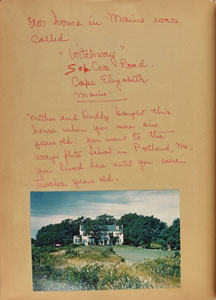 Our house in Maine was
called
"Witchway"
Cove Road
Cape Elizabeth
Maine.
Mother and Daddy bought this
house when you were one
year old. You went to the
Wayneflete School in Portland, Me.
You lived here until you were
twelve years old.